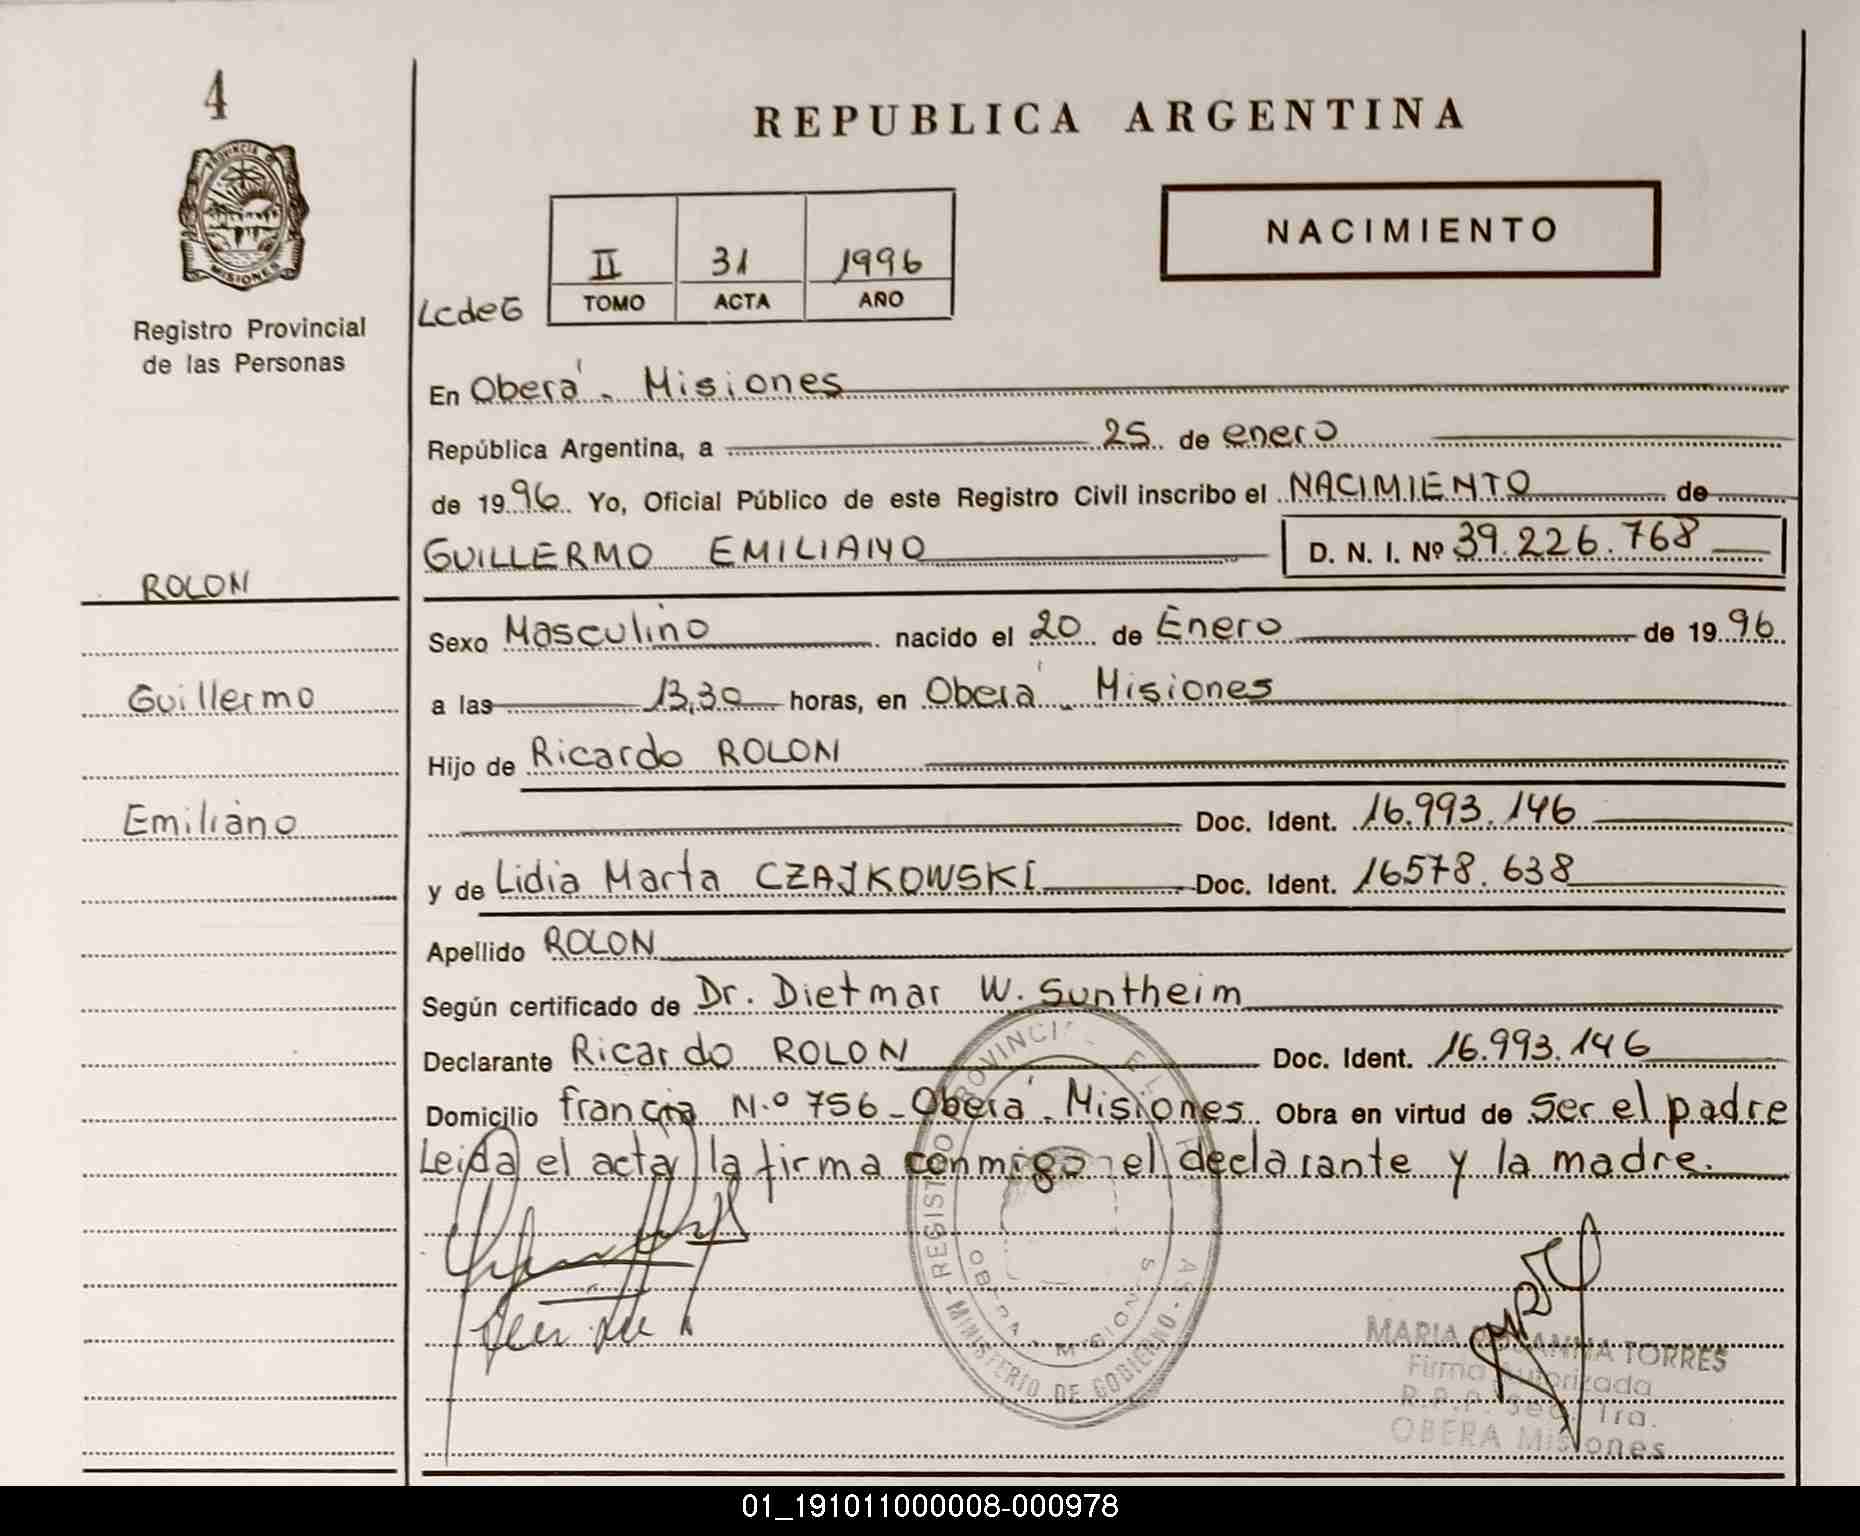 4
PROVINCIA D
MISIONES
Registro Provincial
de las Personas
ROLON
Guillermo
Emiliano
REPUBLICA ARGENTINA
NACIMIENTO
II 31 1996
TOMO ACTA AÑO
LcdeG
En Oberá - Misiones
República Argentina, a 25 de enero
de 1996 Yo, Oficial Público de este Registro Civil inscribo el NACIMIENTO de
GUILLERMO EMILIANO D. N. I. Nº 39.226.768
Sexo Masculino nacido el 20 de Enero de 1996
a las 13,30 horas, en Oberá - Misiones
Hijo de Ricardo ROLON
Doc. Ident. 16.993.146
y de Lidia Marta CZAJKOWSKI Doc. Ident. 16578.638
Apellido ROLON
Según certificado de Dr. Dietmar W. Suntheim
Declarante Ricardo ROLON Doc. Ident. 16.993.146
Domicilio francia N.º 756 - Oberá - Misiones Obra en virtud de ser el padre
Leida el acta la firma conmigo el declarante y la madre.
REGISTRO PROVINCIAL
MINISTERIO DE GOBIERNO
OBERA MISIONES
MARIA TORRES
Firma Autorizada
R.P.P. Sec. 1ra.
OBERA Misiones
01_191011000008-000978